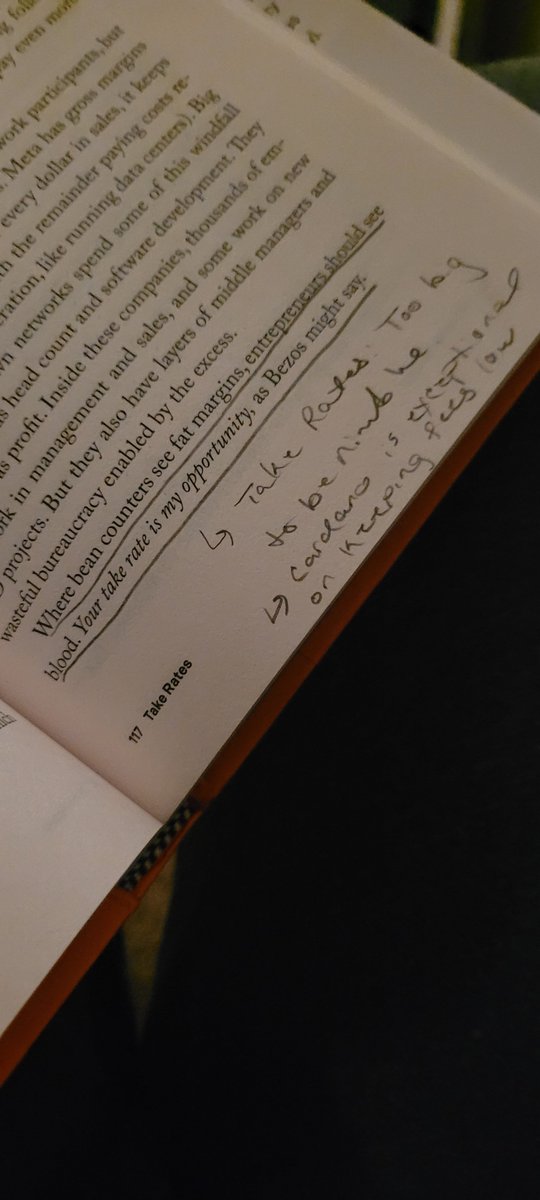 pay even more
work participants, but
Meta has gross margins
every dollar in sales, it keeps
the remainder paying costs re-
eration, like running data centers). Big
own networks spend some of this windfall
as head count and software development. They
as profit. Inside these companies, thousands of em-
work in management and sales, and some work on new
projects. But they also have layers of middle managers and
wasteful bureaucracy enabled by the excess.
Where bean counters see fat margins, entrepreneurs should see
blood. Your take rate is my opportunity, as Bezos might say.
↳ Take Rates: Too big
to be nimble
↳ Cardano is exceptional
on keeping fees low
117 Take Rates